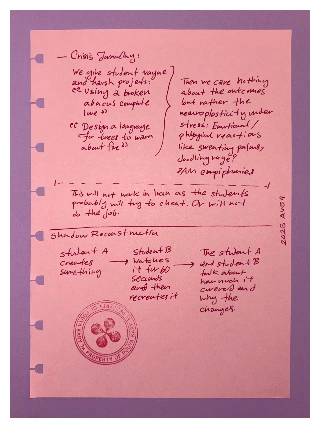 — Crisis
We give student vague
and harsh projects:
"Using a broken
abacus compute
"Design a language
for trees to warn
about fire"
Then we care nothing
about the outcomes
but rather the
neuroplasticity under
stress: Emotional/
reactions
like sweating palms,
doodling rage?
This will not work in Iran as the students
probably will try to cheat. Or will not
do the job.
Shadow Reconstruction
student A
creates
something
→
Student B
watches
it for 60
seconds
and then
recreates it
→
The student A
and student B
talk about
how much it
and
why the
changes.